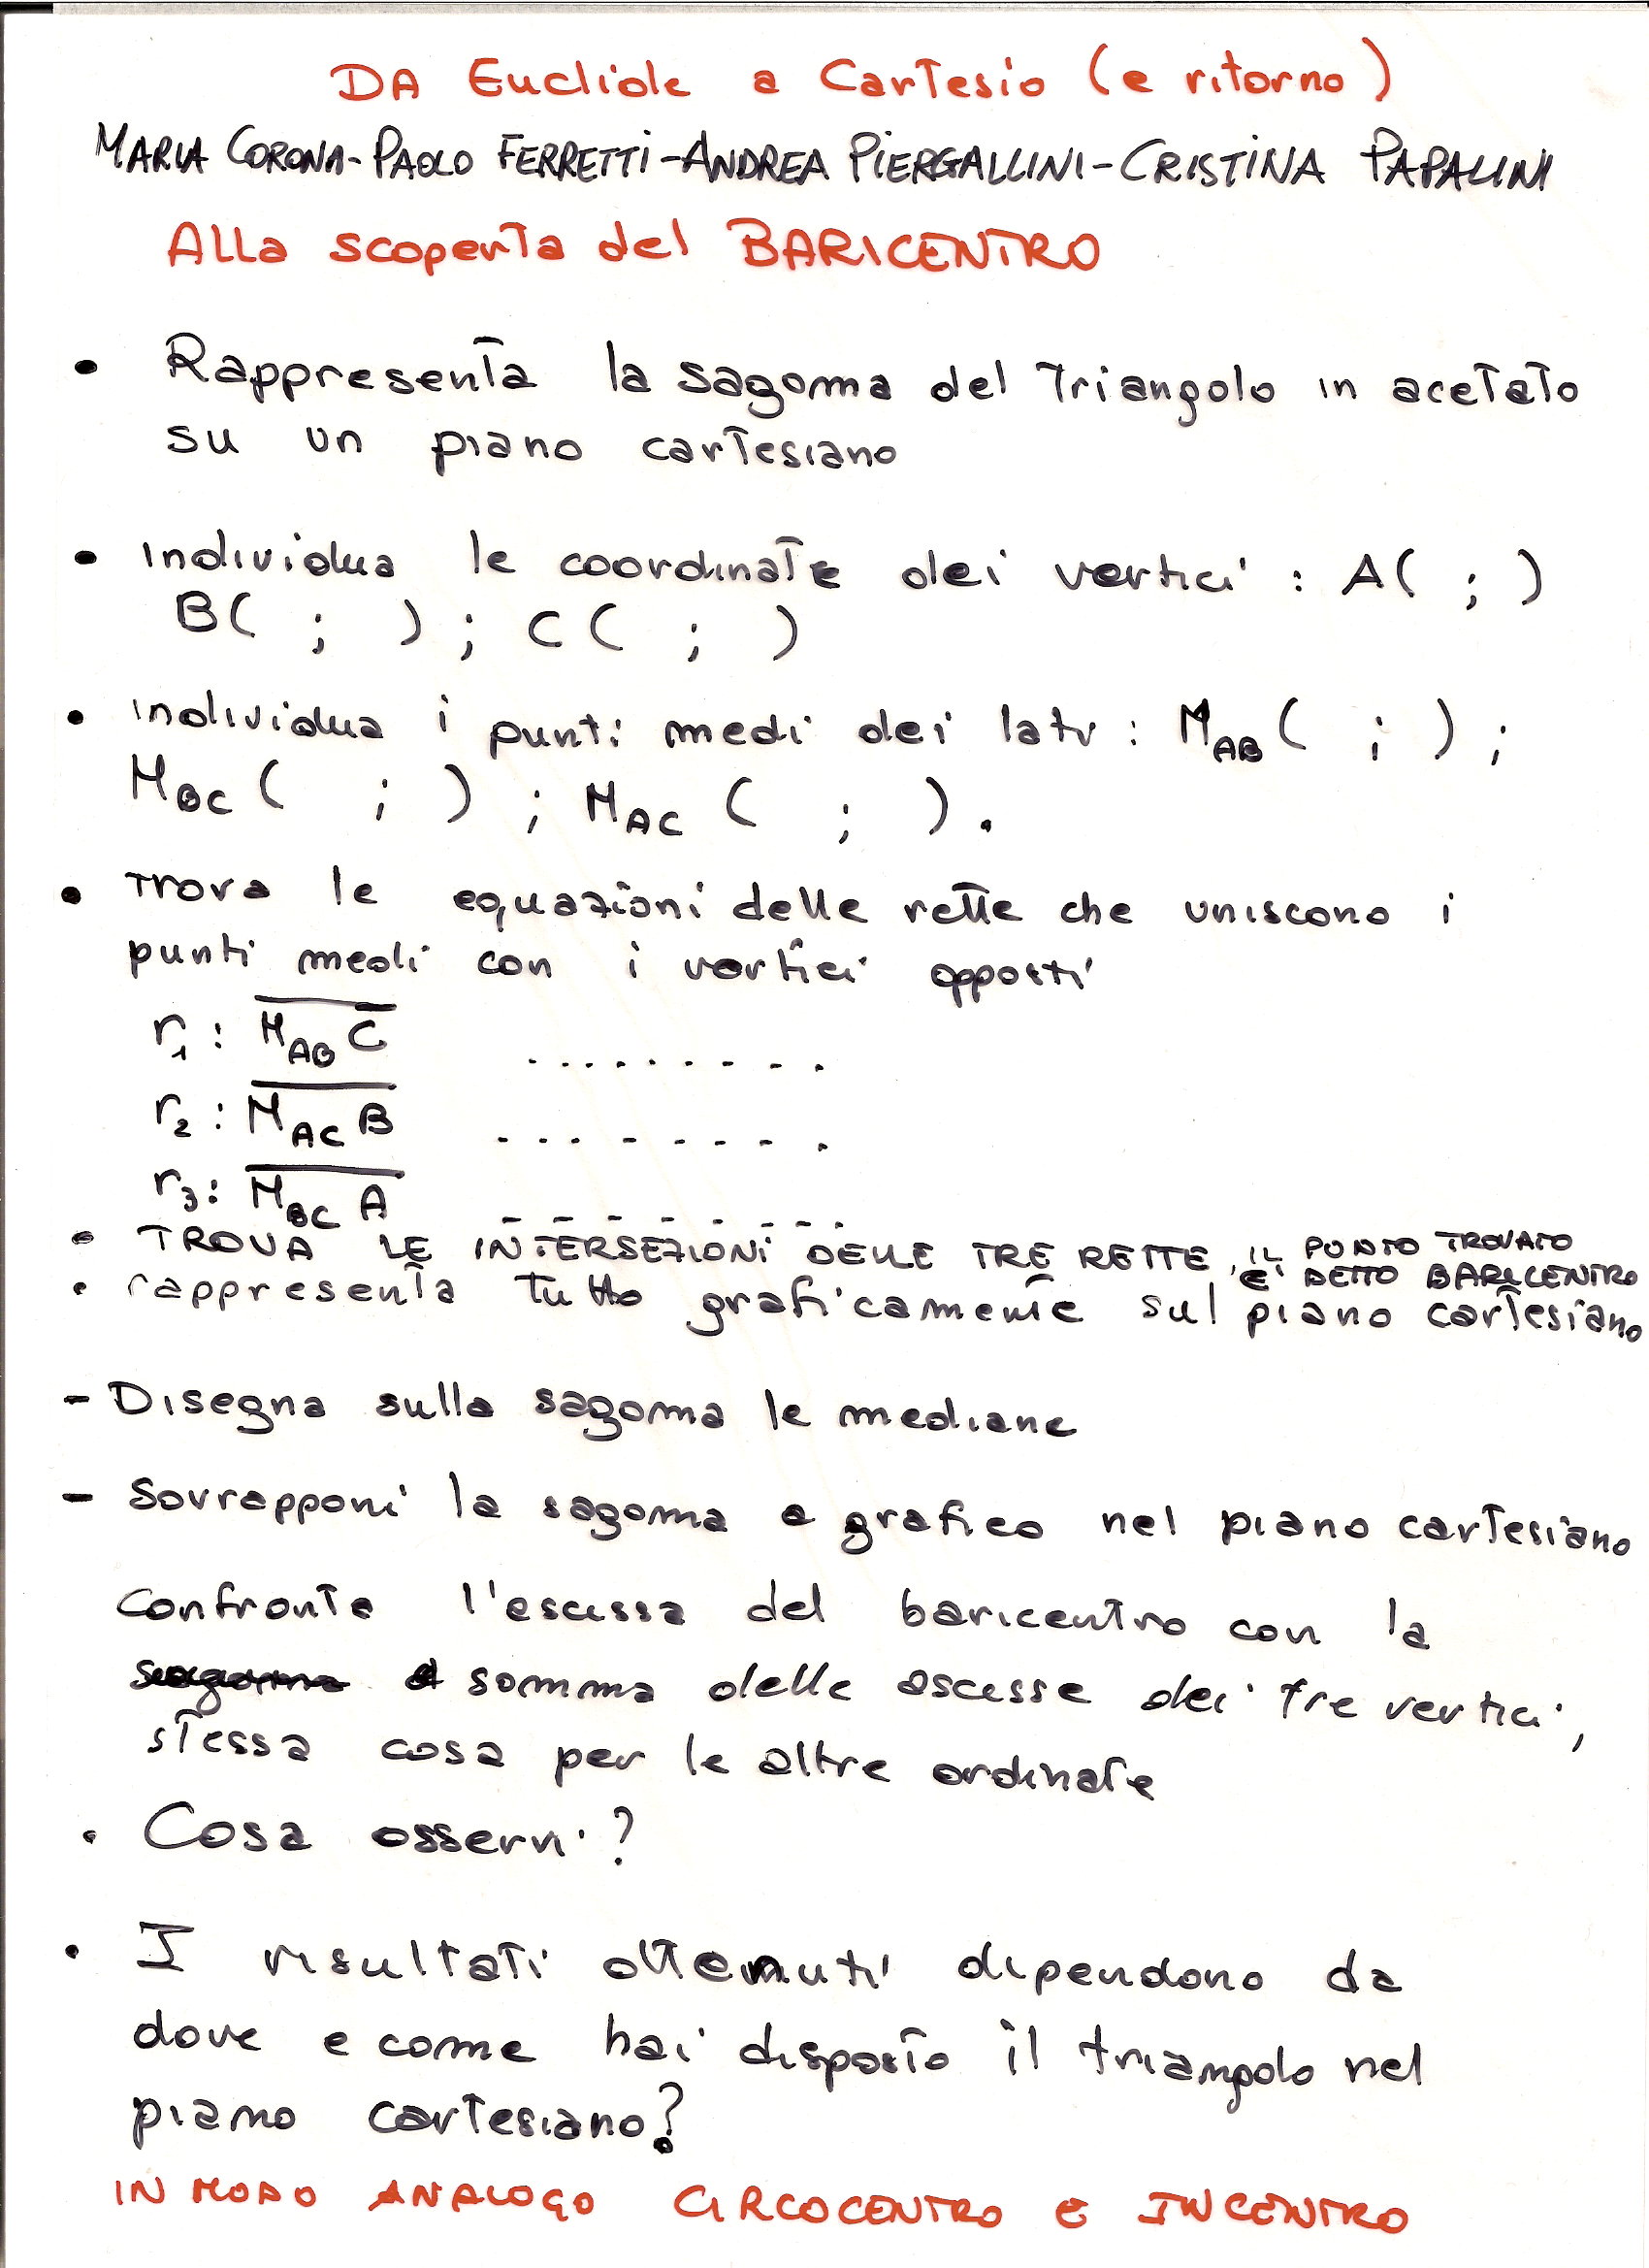 DA Euclide a Cartesio (e ritorno)
MARIA CORONA-PAOLO FERRETTI-ANDREA PIERGALLINI-CRISTINA PAPALINI
Alla scoperta del BARICENTRO
• Rappresenta la sagoma del triangolo in acetato
su un piano cartesiano
• individua le coordinate dei vertici : A( ; )
B( ; ) ; C( ; )
• individua i punti medi dei lati : M_AB ( ; ) ;
M_BC ( ; ) ; M_AC ( ; ) .
• Trova le equazioni delle rette che uniscono i
punti medi con i vertici opposti
r1 : M_AB C .........
r2 : M_AC B ........
r3 : M_BC A ........
• TROVA LE INTERSEZIONI DELLE TRE RETTE, IL PUNTO TROVATO
E' DETTO BARICENTRO
• rappresenta tutto graficamente sul piano cartesiano
- Disegna sulla sagoma le mediane
- Sovrapponi la sagoma a grafico nel piano cartesiano
Confronta l'ascissa del baricentro con la
sagoma somma delle ascisse dei tre vertici,
stessa cosa per le altre ordinate
• Cosa osservi?
• I risultati ottenuti dipendono da
dove e come hai disposto il triangolo nel
piano cartesiano?
IN MODO ANALOGO CIRCOCENTRO E INCENTRO